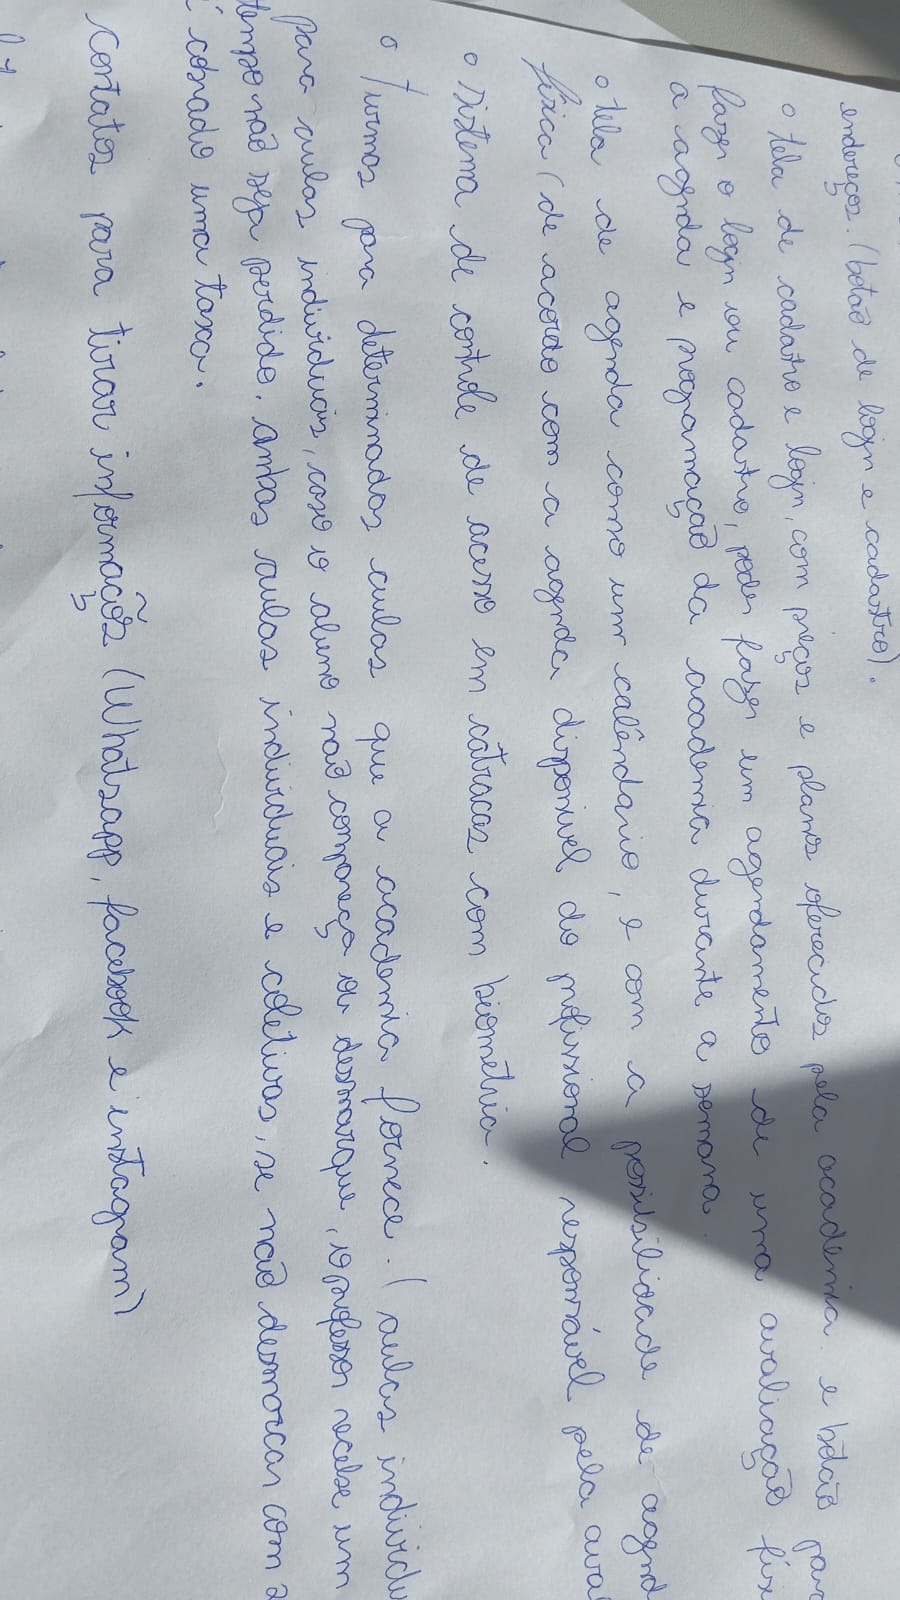 endereços. (botão de login e cadastro).
o tela de cadastro e login, com preços e planos oferecidos pela academia. e botão para
fazer o login ou cadastro, poder fazer um agendamento de uma avaliação físi
a agenda e programação da academia durante a semana.
o tela de agenda como um calêndario, e com a possibilidade de agend
física (de acordo com a agenda disponivel do profissional responsável pela aval
o sistema de controle de acesso em catracas com biometria.
o turmas para determinadas aulas que a academia fornece. (aulas individu
para aulas individuais, caso o aluno não compareça ou desmarque, o professor recebe um
tempo não seja perdido. ambas aulas individuais e coletivas, se não desmarcar com 2
é cobrado uma taxa.
contatos para tirar informações (Whatsapp, facebook e instagram)